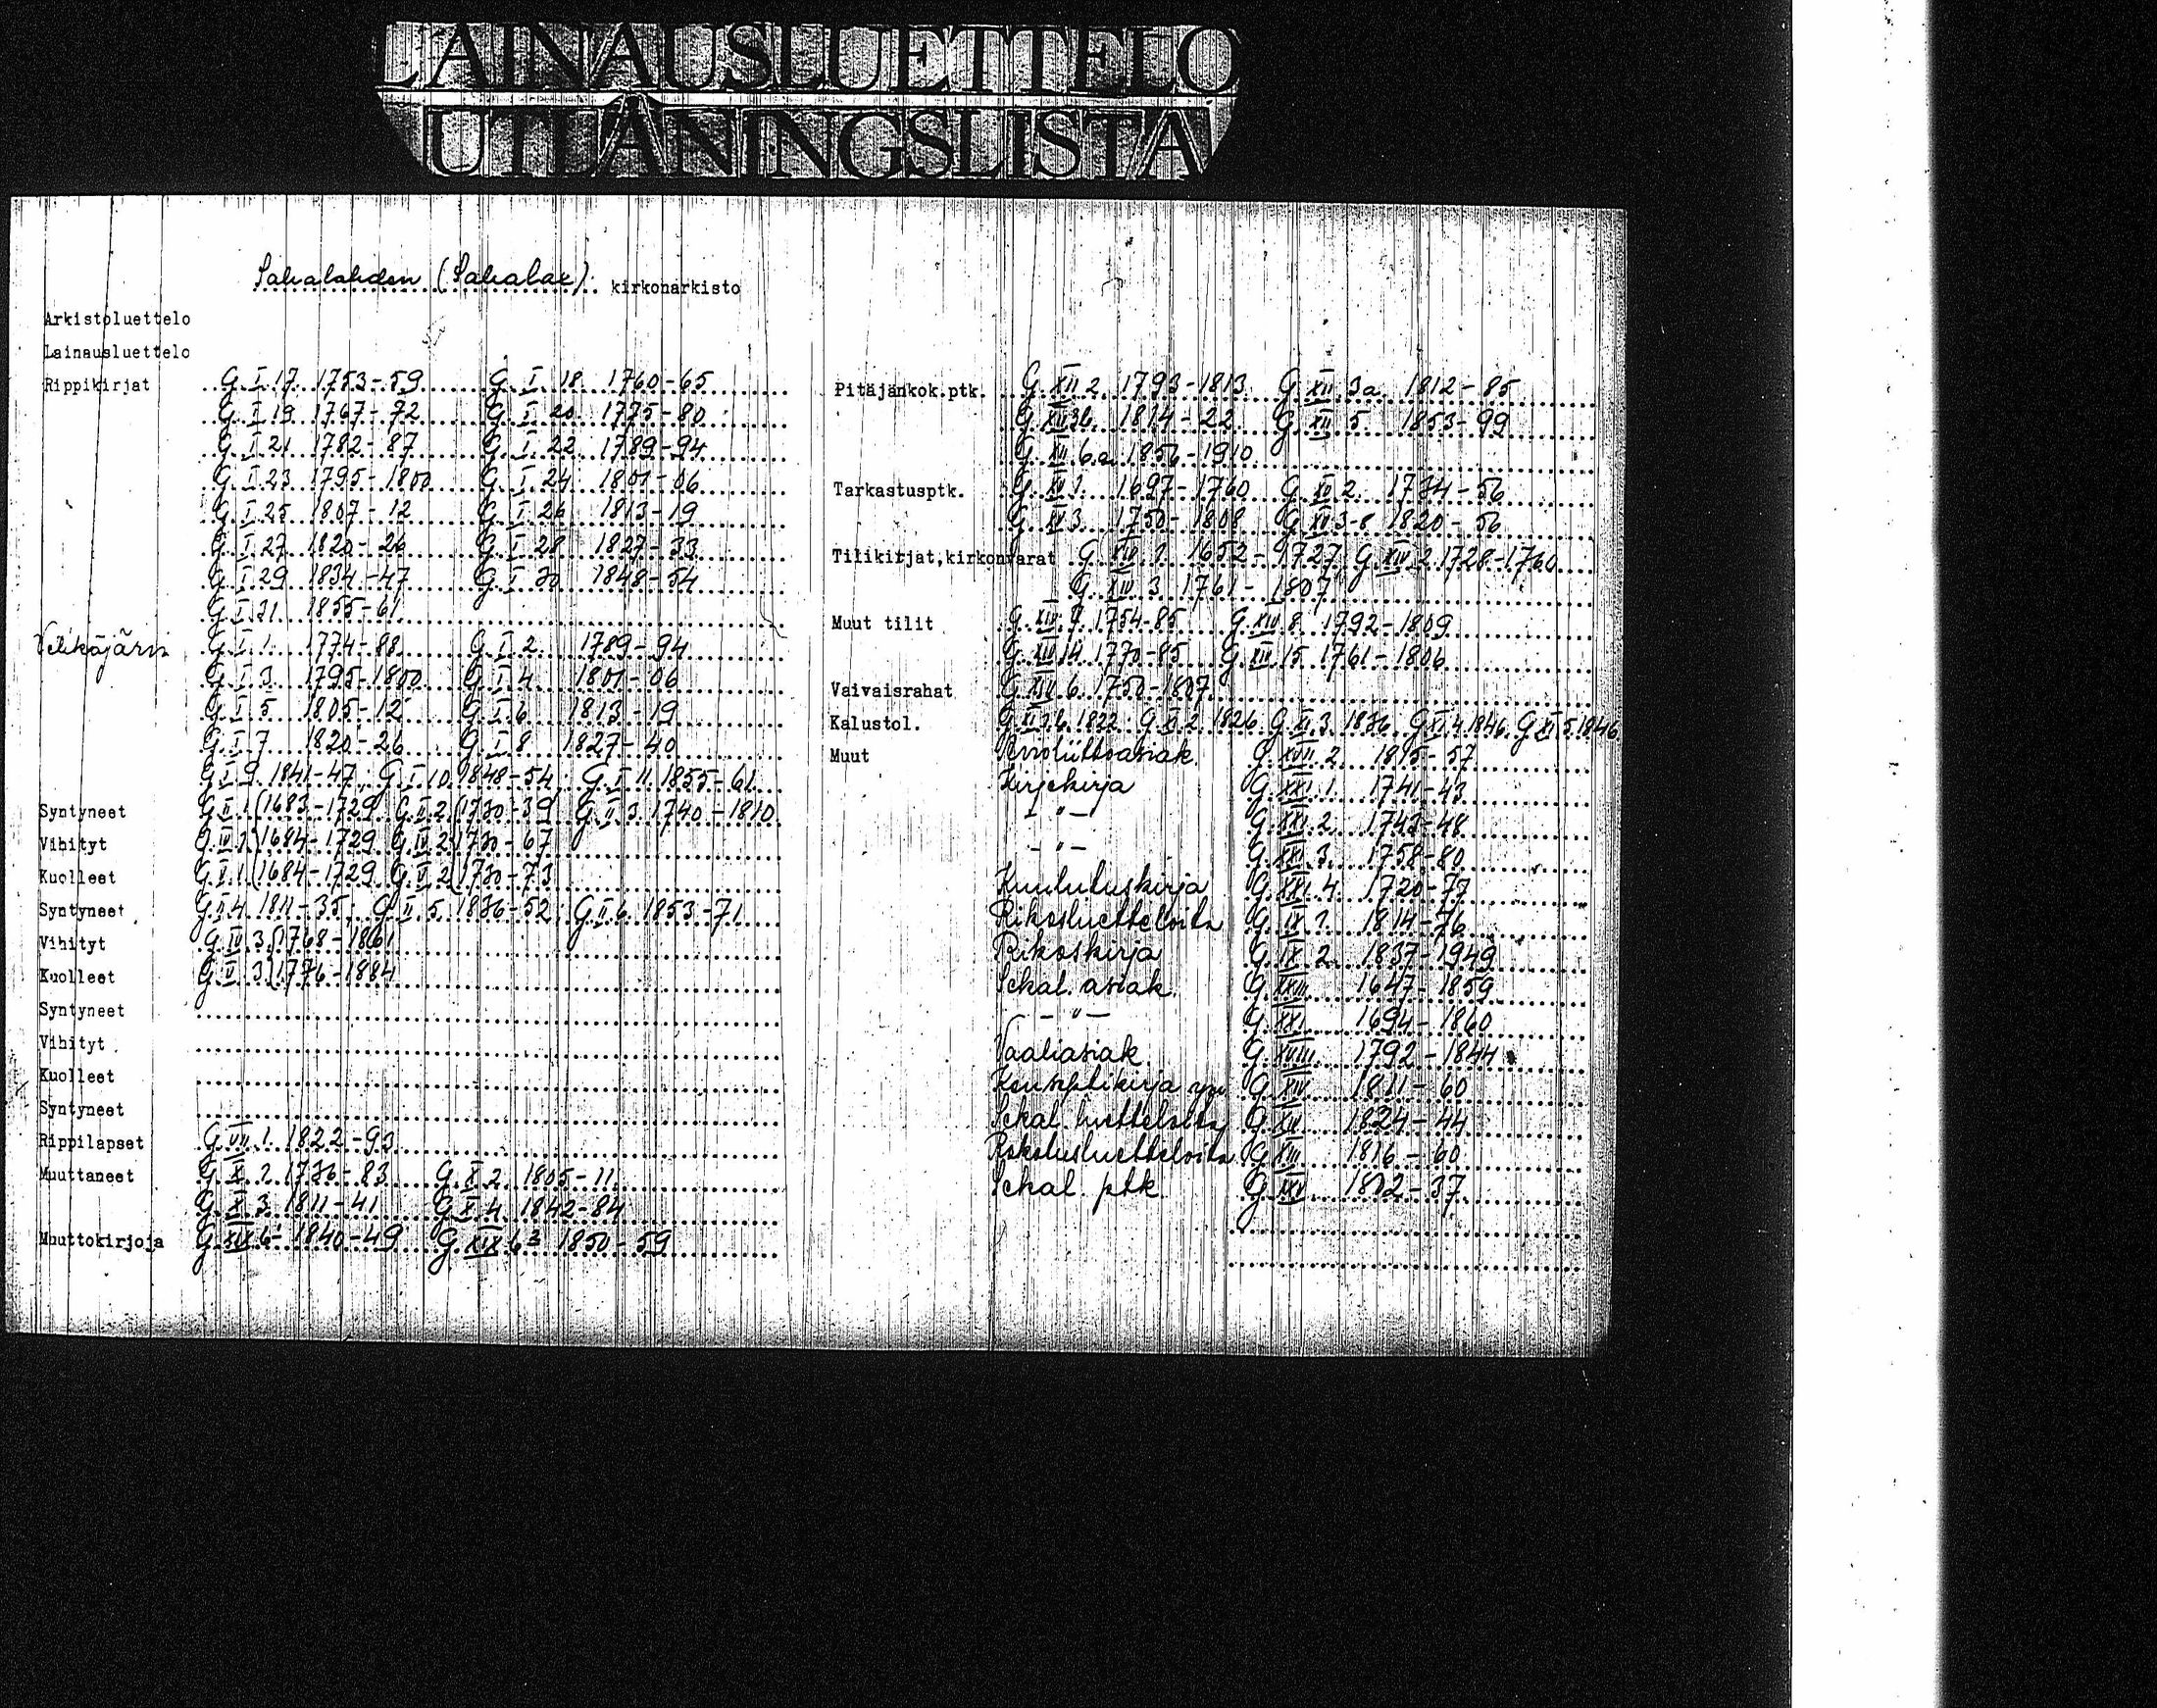 LAINAUSLUETTELO
UTLÅNINGSLISTA
Sahalahden (Sahalax) kirkonarkisto
Arkistoluettelo
Lainausluettelo
Rippikirjat G I 17 1753-59 G I 18 1760-65
G I 19 1767-72 G I 20 1775-80
G I 21 1782-87 G I 22 1789-94
G I 23 1795-1800 G I 24 1801-06
G I 25 1807-12 G I 26 1813-19
G I 27 1820-26 G I 28 1827-33
G I 29 1834-47 G I 30 1848-54
G I 31 1855-61
G I 1 1774-88 G I 2 1789-94
G I 3 1795-1800 G I 4 1801-06
G I 5 1805-12 G I 6 1813-19
G I 7 1820-26 G I 8 1827-40
G I 9 1841-47; G I 10 1848-54; G I 11 1855-61
Syntyneet G II 1 (1683-1729 G II 2 (1730-39 G II 3 1740-1810
Vihityt (1684-1729 G IV 2 1730-67
Kuolleet G V 1 (1684-1729 G V 2 (1730-73
Syntyneet G II 4 1811-35; G II 5 1836-52; G II 6 1853-71
Vihityt G IV 3 1768-1861
Kuolleet G V 3 1776-1884
Syntyneet
Vihityt
Kuolleet
Syntyneet
Rippilapset G VII 1 1822-93
Muuttaneet G X 1 1736-83 G X 2 1805-11
G X 3 1811-41 G X 4 1842-84
Muuttokirjoja G XIX 1840-49 G XIX 1850-59
Pitäjänkok.ptk. G XII 2 1793-1813 G XII 3a 1812-85
G XII 3b 1814-22 G XII 5 1853-99
G XII 6a 1856-1910
Tarkastusptk. 1697-1760 1734-56
1750-1808 1820-56
Tilikirjat,kirkonvarat G XIV 1 1652-1727; G XIV 2 1728-1760
G XIV 3 1761-1807
Muut tilit 1754-85 G XIV 8 1792-1809
G XIV 14 1770-85 15 1761-1806
Vaivaisrahat G XIV 6 1750-1807
Kalustol. 1822 1826 1836 1846 1846
Muut Avioliittoasiak. G XVII 2 1815-57
Kirjekirja G XXI 1 1741-43
-"- G XXI 2 1743-48
-"- G XXI 3 1758-80
Kuulutuskirja G XXI 4 1720-77
Rikosluetteloita G IX 1 1814-76
Rikoskirja G IX 2 1837-1949
Sekal. asiak. G XXIII 1647-1859
-"- G XXI 1694-1860
Vaaliasiak. G XVIII 1792-1844
Konseptikirja G XIV 1811-60
Sekal. luetteloita 1824-44
Rokotusluetteloita G XIII 1816-60
Sekal. ptk.